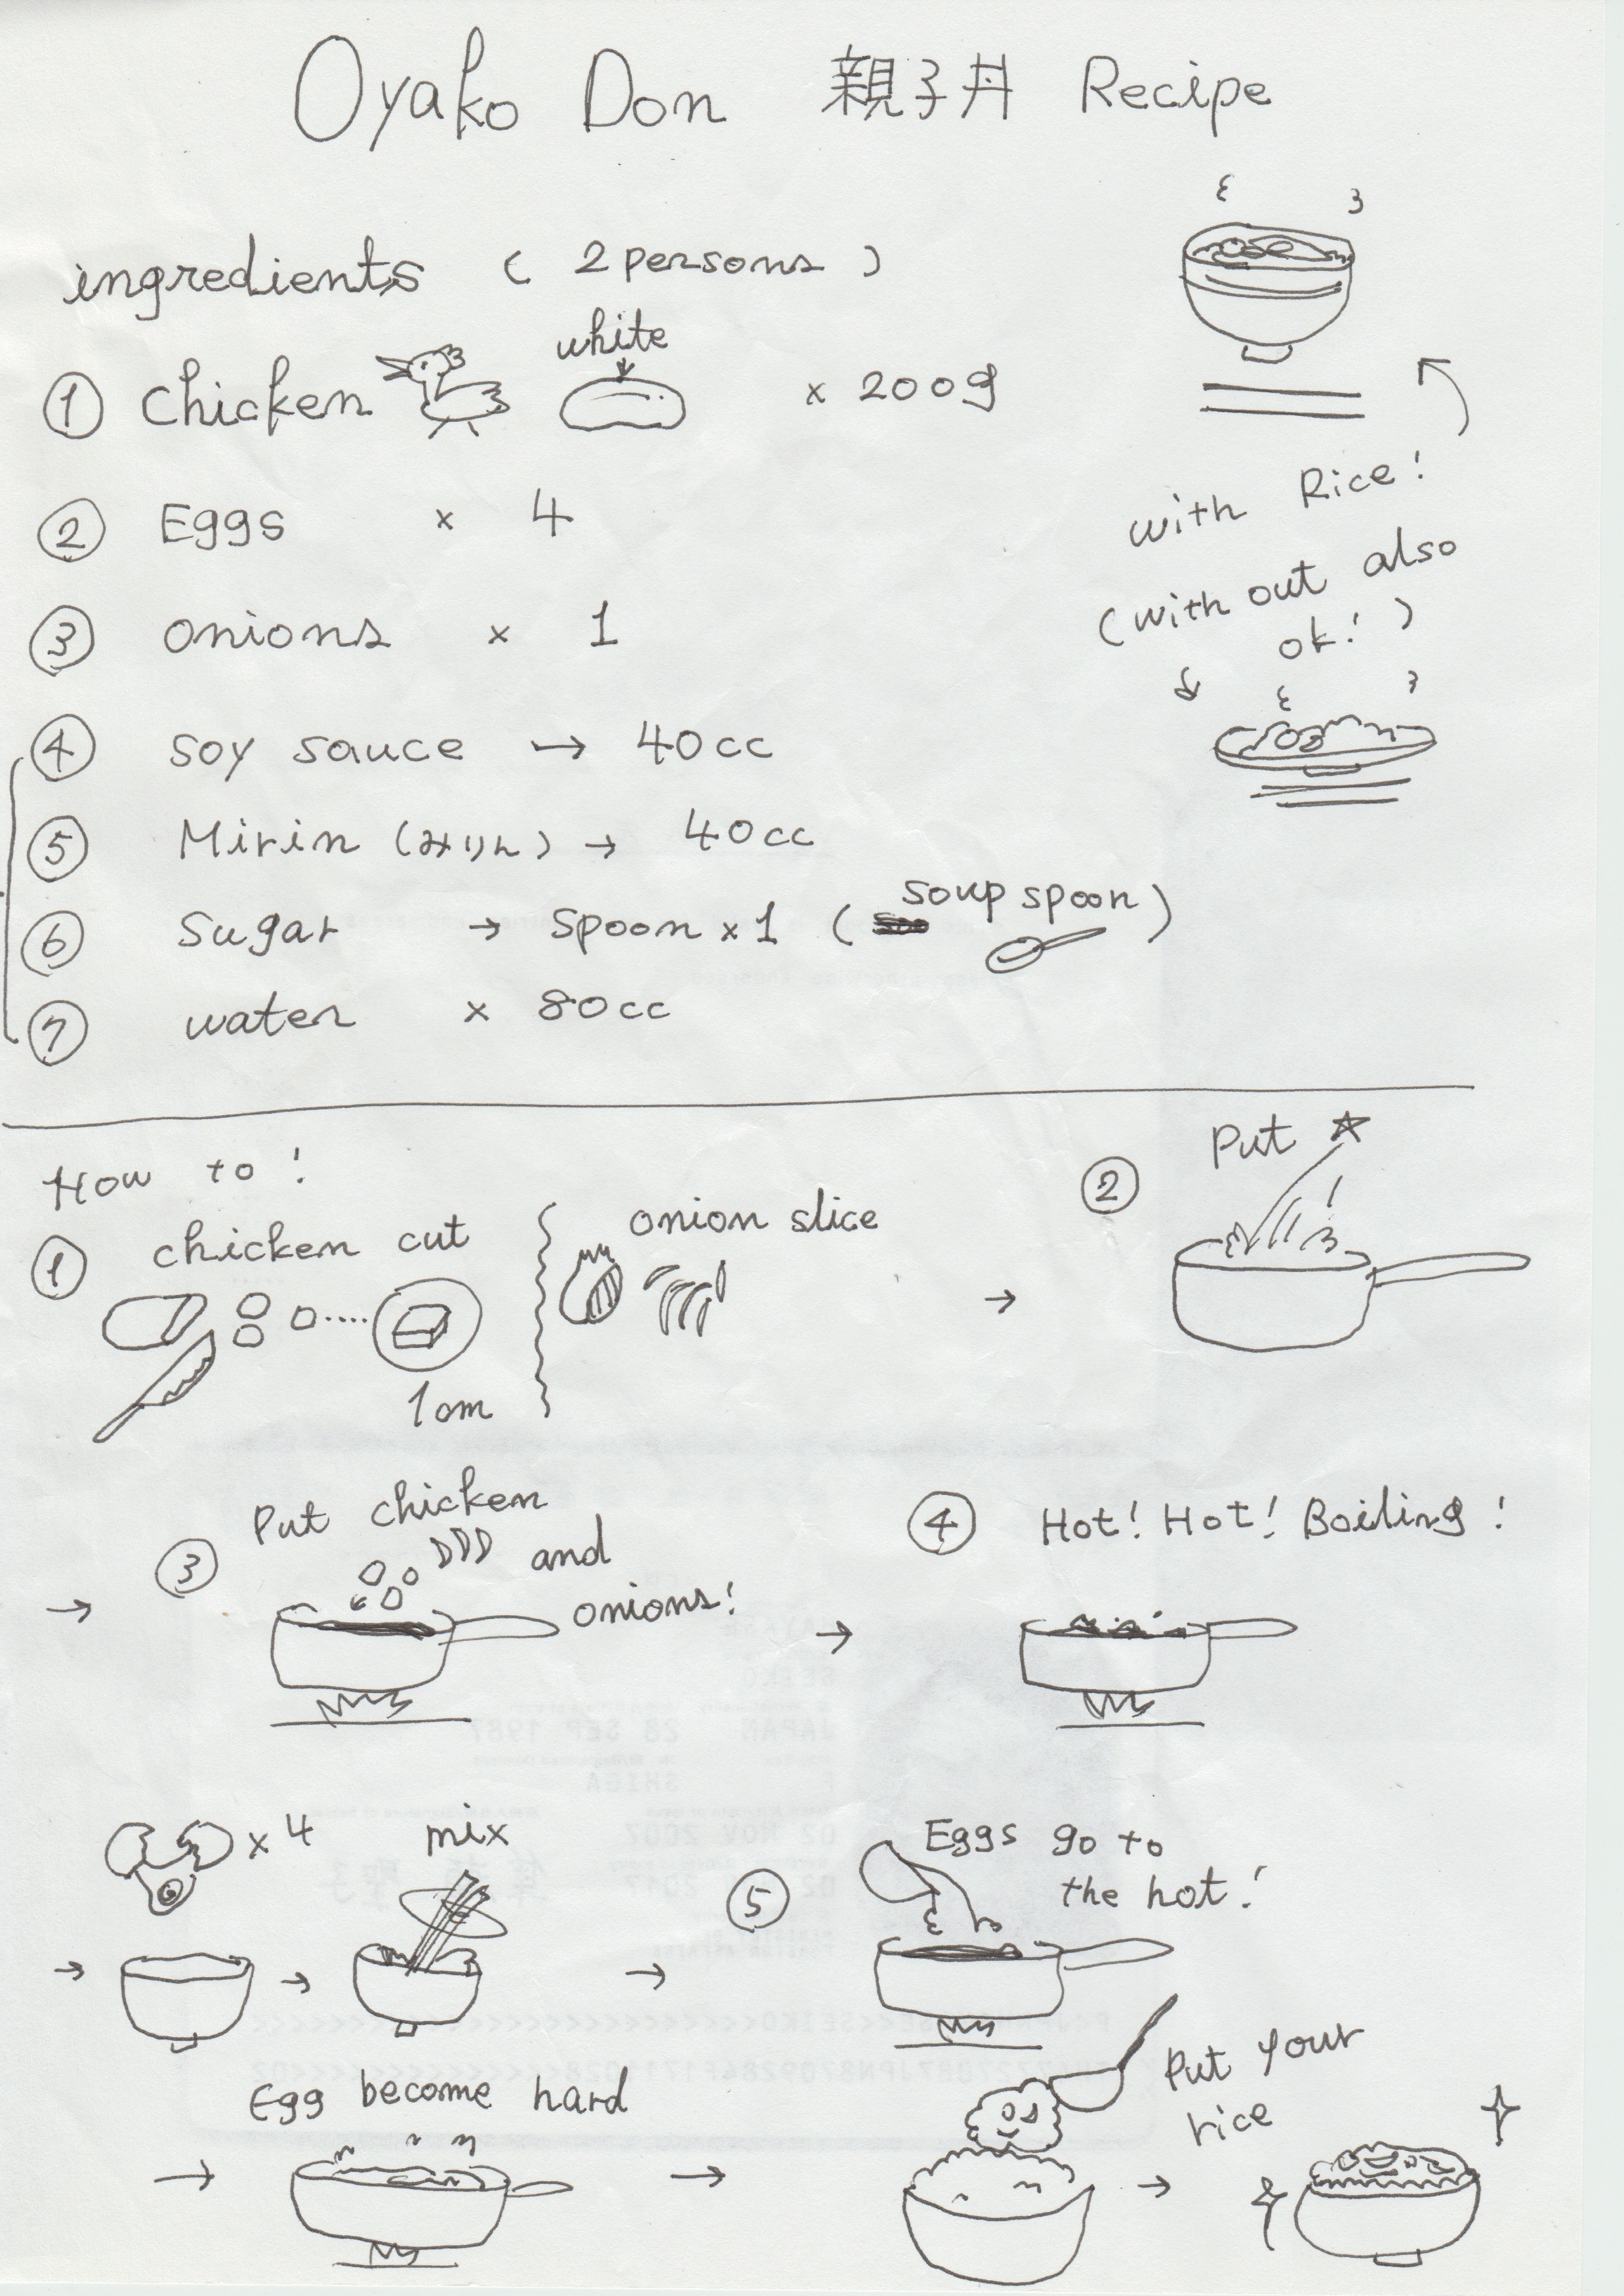 Oyako Don 親子丼 Recipe
ingredients ( 2 persons )
white
① Chicken × 200g
② Eggs × 4
③ onions × 1
④ soy sauce → 40cc
⑤ Mirin (みりん) → 40cc
⑥ Sugar → spoon × 1 ( soup spoon )
⑦ water × 80cc
with Rice!
(with out also
ok!)
How to!
① chicken cut
1cm
onion slice
→
② Put ☆
→ ③ Put chicken
and
onions!
→
④ Hot! Hot! Boiling!
→
× 4
→
mix
→
⑤ Eggs go to
the hot!
→
Egg become hard
→
Put your
rice
→